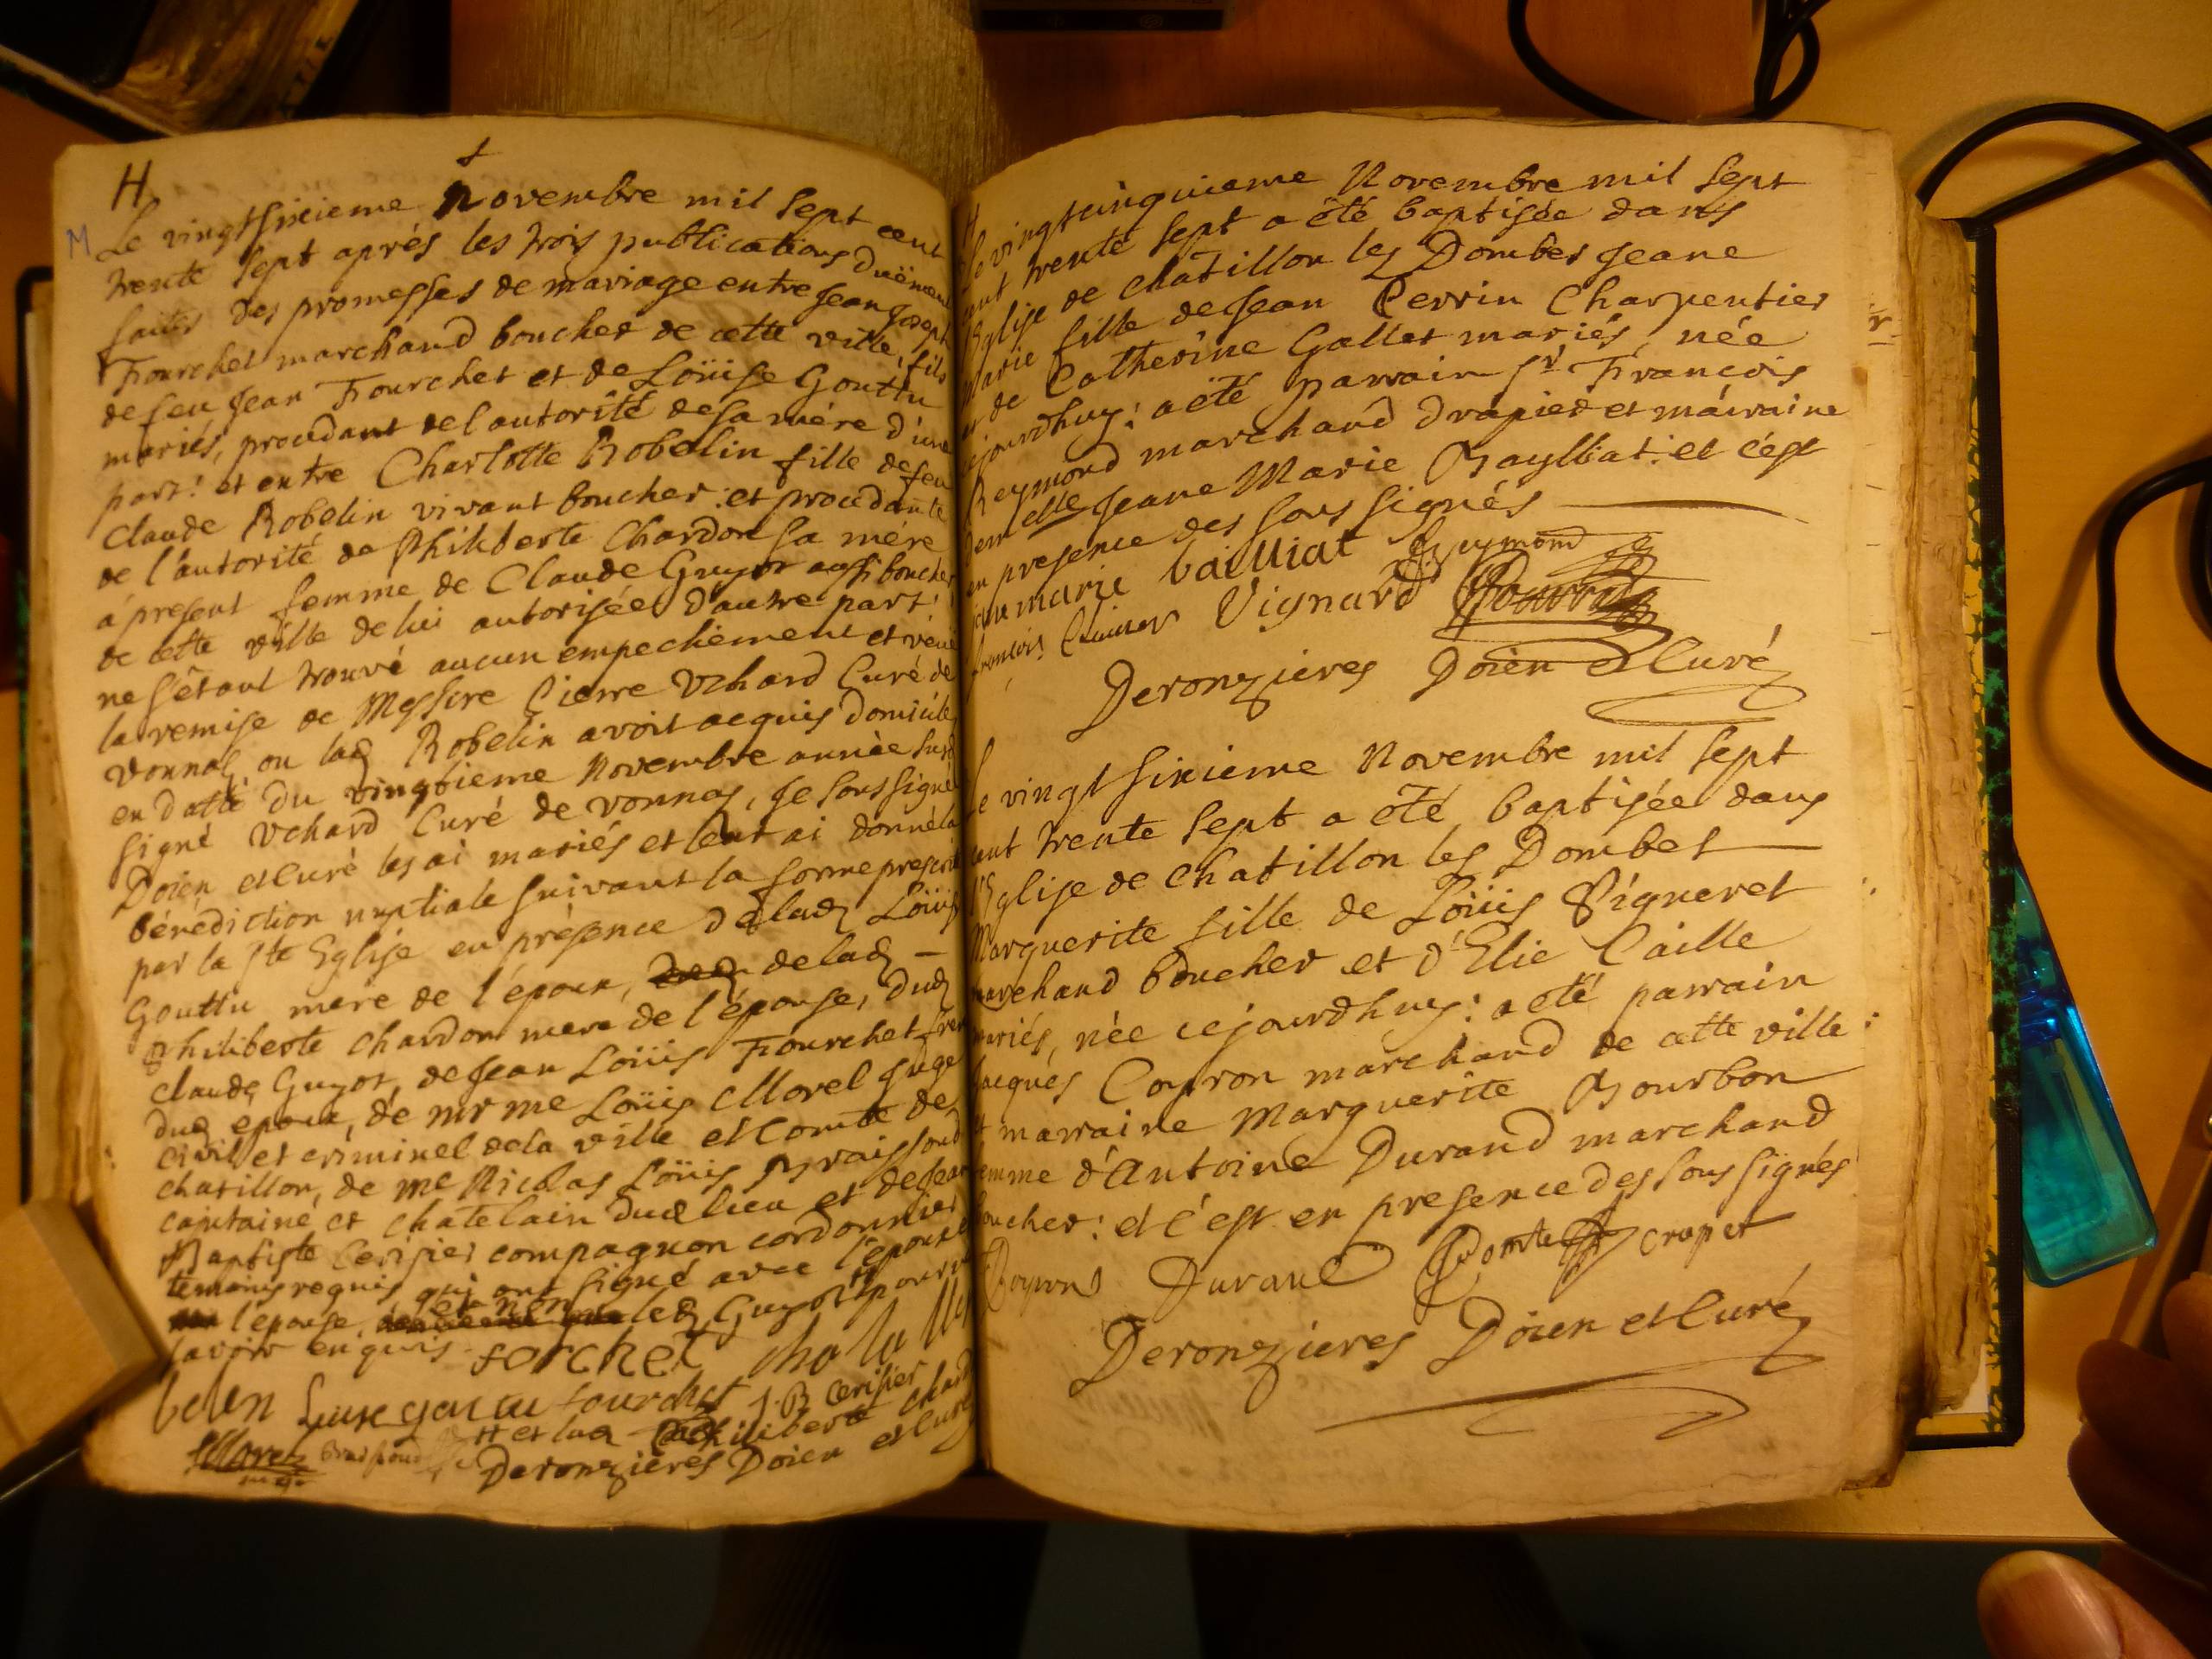 H
M Le vingtsixieme Novembre mil sept cent
trente sept aprés les trois publications duëment
faites des promesses de mariage entre Jean Joseph
Fourchet marchand boucher de cette ville, fils
de feu Jean Fourchet et de Loüise Gouttu
mariés, procedant de l'autorité de sa mére d'une
part: et entre Charlotte Robelin fille de feu
Claude Robelin vivant boucher: et procedante
de l'autorité de Philiberte Chardon sa mére
à present femme de Claude Guyot aussi boucher
de cette ville de lui autorisée d'autre part:
ne s'étant trouvé aucun empechement et veüe
la remise de Messire Pierre Vchard Curé de
Vonnas, ou lad Robelin avoit acquis domicile
en datte du vingtieme Novembre année susd
signé Vchard Curé de Vonnas, Je soussigné
Doïen et Curé les ai mariés et leur ai donné la
bénédiction nuptiale suivant la forme prescrite
par la ste Eglise en présence de lad Loüise
Gouttu mere de l'époux, de lad
Philiberte chardon mere de l'épouse, dud
claude Guyot, de Jean Loüis Fourchet frere
dud epoux, de mr me Loüis Morel Juge
civil et criminel de la ville et Comté de
chatillon, de me Nicolas Loüis Braissoud
capitaine et chatelain dud lieu et de Jean
Baptiste Cerisier compagnon cordonnier
temoins requis qui ont signé avec l'épouse
l'épouse, et non led Guyot pour ne
savoir enquis. forchet cha lo tte
belin Luise goutu fourchet J. B Cerisier
Morel et lad Philiberte chardon
Deronzieres Doïen et Curé
H
Le vingtcinquieme Novembre mil sept
cent trente sept a été baptisée dans
l'Eglise de chatillon les Dombes Jeane
Marie fille de Jean Perrin Charpentier
et de Catherine Gallet mariés, née
cejourdhuy: a été parrain sr François
Reymond marchand drapier et marraine
demelle Jeane Marie Baylliat: et c'est
en presence des sous signés
jeane marie bailliat Reymond
françois Vignard
Deronzieres Doïen et Curé
Le vingt sixieme Novembre mil sept
cent trente sept a été baptisée dans
l'Eglise de chatillon les Dombes
Marguerite fille de Loüis Pigneret
marchand boucher et d'Elie Caille
mariés, née cejourdhuy: a été parrain
Jacques Copron marchand de cette ville:
et marraine Marguerite Bourbon
femme d'Antoine Durand marchand
boucher: et c'est en presence des sous signés
Durand crapet
Deronzieres Doïen et Curé